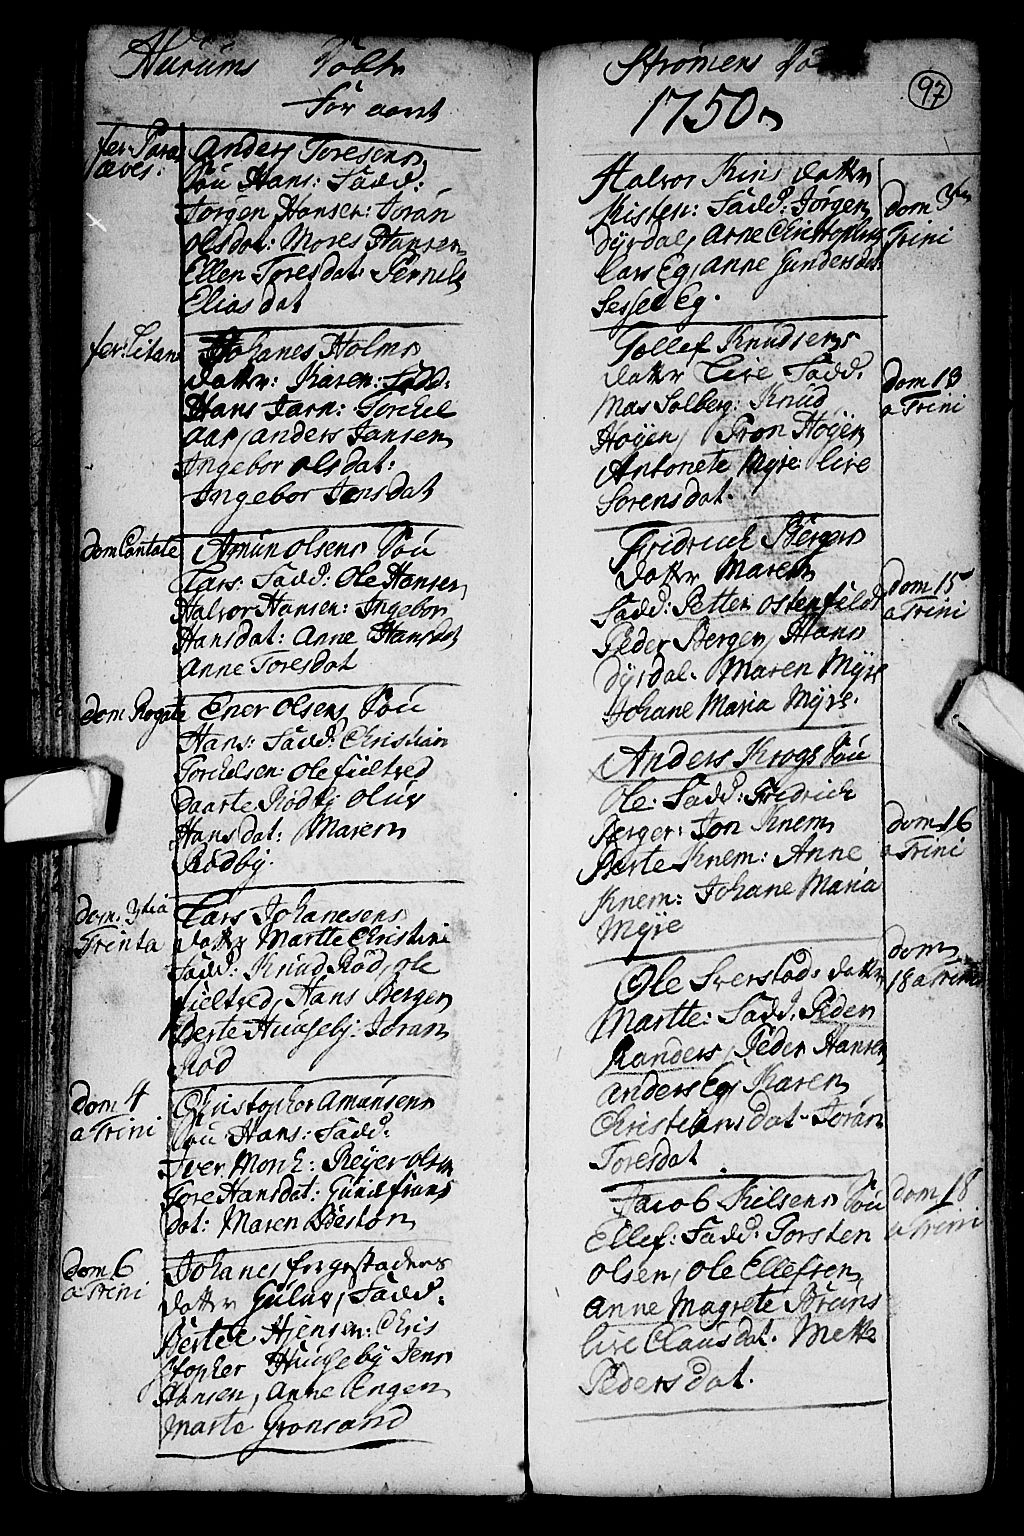 Hurums Döbte
för aaret
fer: Para
sæves:
Anders Toresens
Sön Hans: Fadd:
Jörgen Hansen: Joran
Olsdat: Mores Hansen
Ellen Toresdat: Pernele
Elias dat
fer: Litane
Johanes Holms
datter: Karen: Fadd:
Hans Jarn: Torchel
Aas, Anders Jansen
Ingebor Olsdat:
Ingebor Jensdat
dom Cantate
Amun Olsens Sön
Lars: Fadd: Ole Hansen
Halvor Hansen: Ingebor
Hansdat: Anne Hansdat
Anne Toresdat
dom Rogate
Ener Olsens Sön
Hans: Fadd: Christian
Torchelsen: Ole fieltved
Daarte Rödby Oluv
Hansdat: Maren
Rödby.
dom. 3tia
Trinta
Lars Johanesens
datter Martte Christini
Fadd: Knud Röd, Ole
fieltved, Hans Bergen
Berte Huuseby: Joran
Röd
dom 4
a Trini
Christopher Amunsens
Sön Hans: Fadd:
Iver Monk: Reyer Olsen
Tore Hansdat: Gunild frans
dat: Maren Bestön
dom 6
a Trini
Johanes fregestadens
datter Guluv, Fadd:
Bertel Hiensen: Chris
stopher Huuseby Jens
Hansen, Anne Engen
Marte Gronsand
Strömens
97
1750
Halvor Kins datter
Kisten: Fadd: Jörgen
Dyrdal, Arne Christophers
Lars Eg, Anne Gundersdat
Sessel Eg.
dom 3
Trini
Tollef Knudsens
datter Live Fadd:
Mas Solberg: Knud
Höyen, Tron Höyen
Antonete Myre Live
Sorensdat.
dom 13
a Trini
Fridrich Bergers
datter Maren
Fadd: Petter Ostenfeldt
Peder Bergen, Hans
Dyrdal. Maren Myre
Johane Maria Myre.
dom 15
a Trini
Anders Krogs Sön
Ole: Fadd: Fredrich
Berger: Jon Knem
Berte Knem: Anne
Knem: Johane Maria
Myre
dom 16
a Trini
Ole Sverstads datter
Martte: Fadd: Peder
Randers, Peder Hansen
Anders Eg, Karen
Christensdat. Joran
Toresdat
dom
18 a Trini
Jacob Kilsens Sön
Ellef: Fadd: Torsten
Olsen, Ole Ellefsen
Anne Magrete Bruns
Live Clausdat. Mette
Pedersdat.
dom 18
a Trini